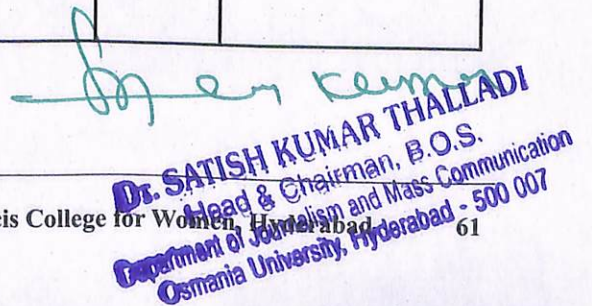 Dr. SATISH KUMAR THALLADI
Head & Chairman, B.O.S.
Department of Journalism and Mass Communication
Osmania University, Hyderabad - 500 007
cis College for Women, Hyderabad 61